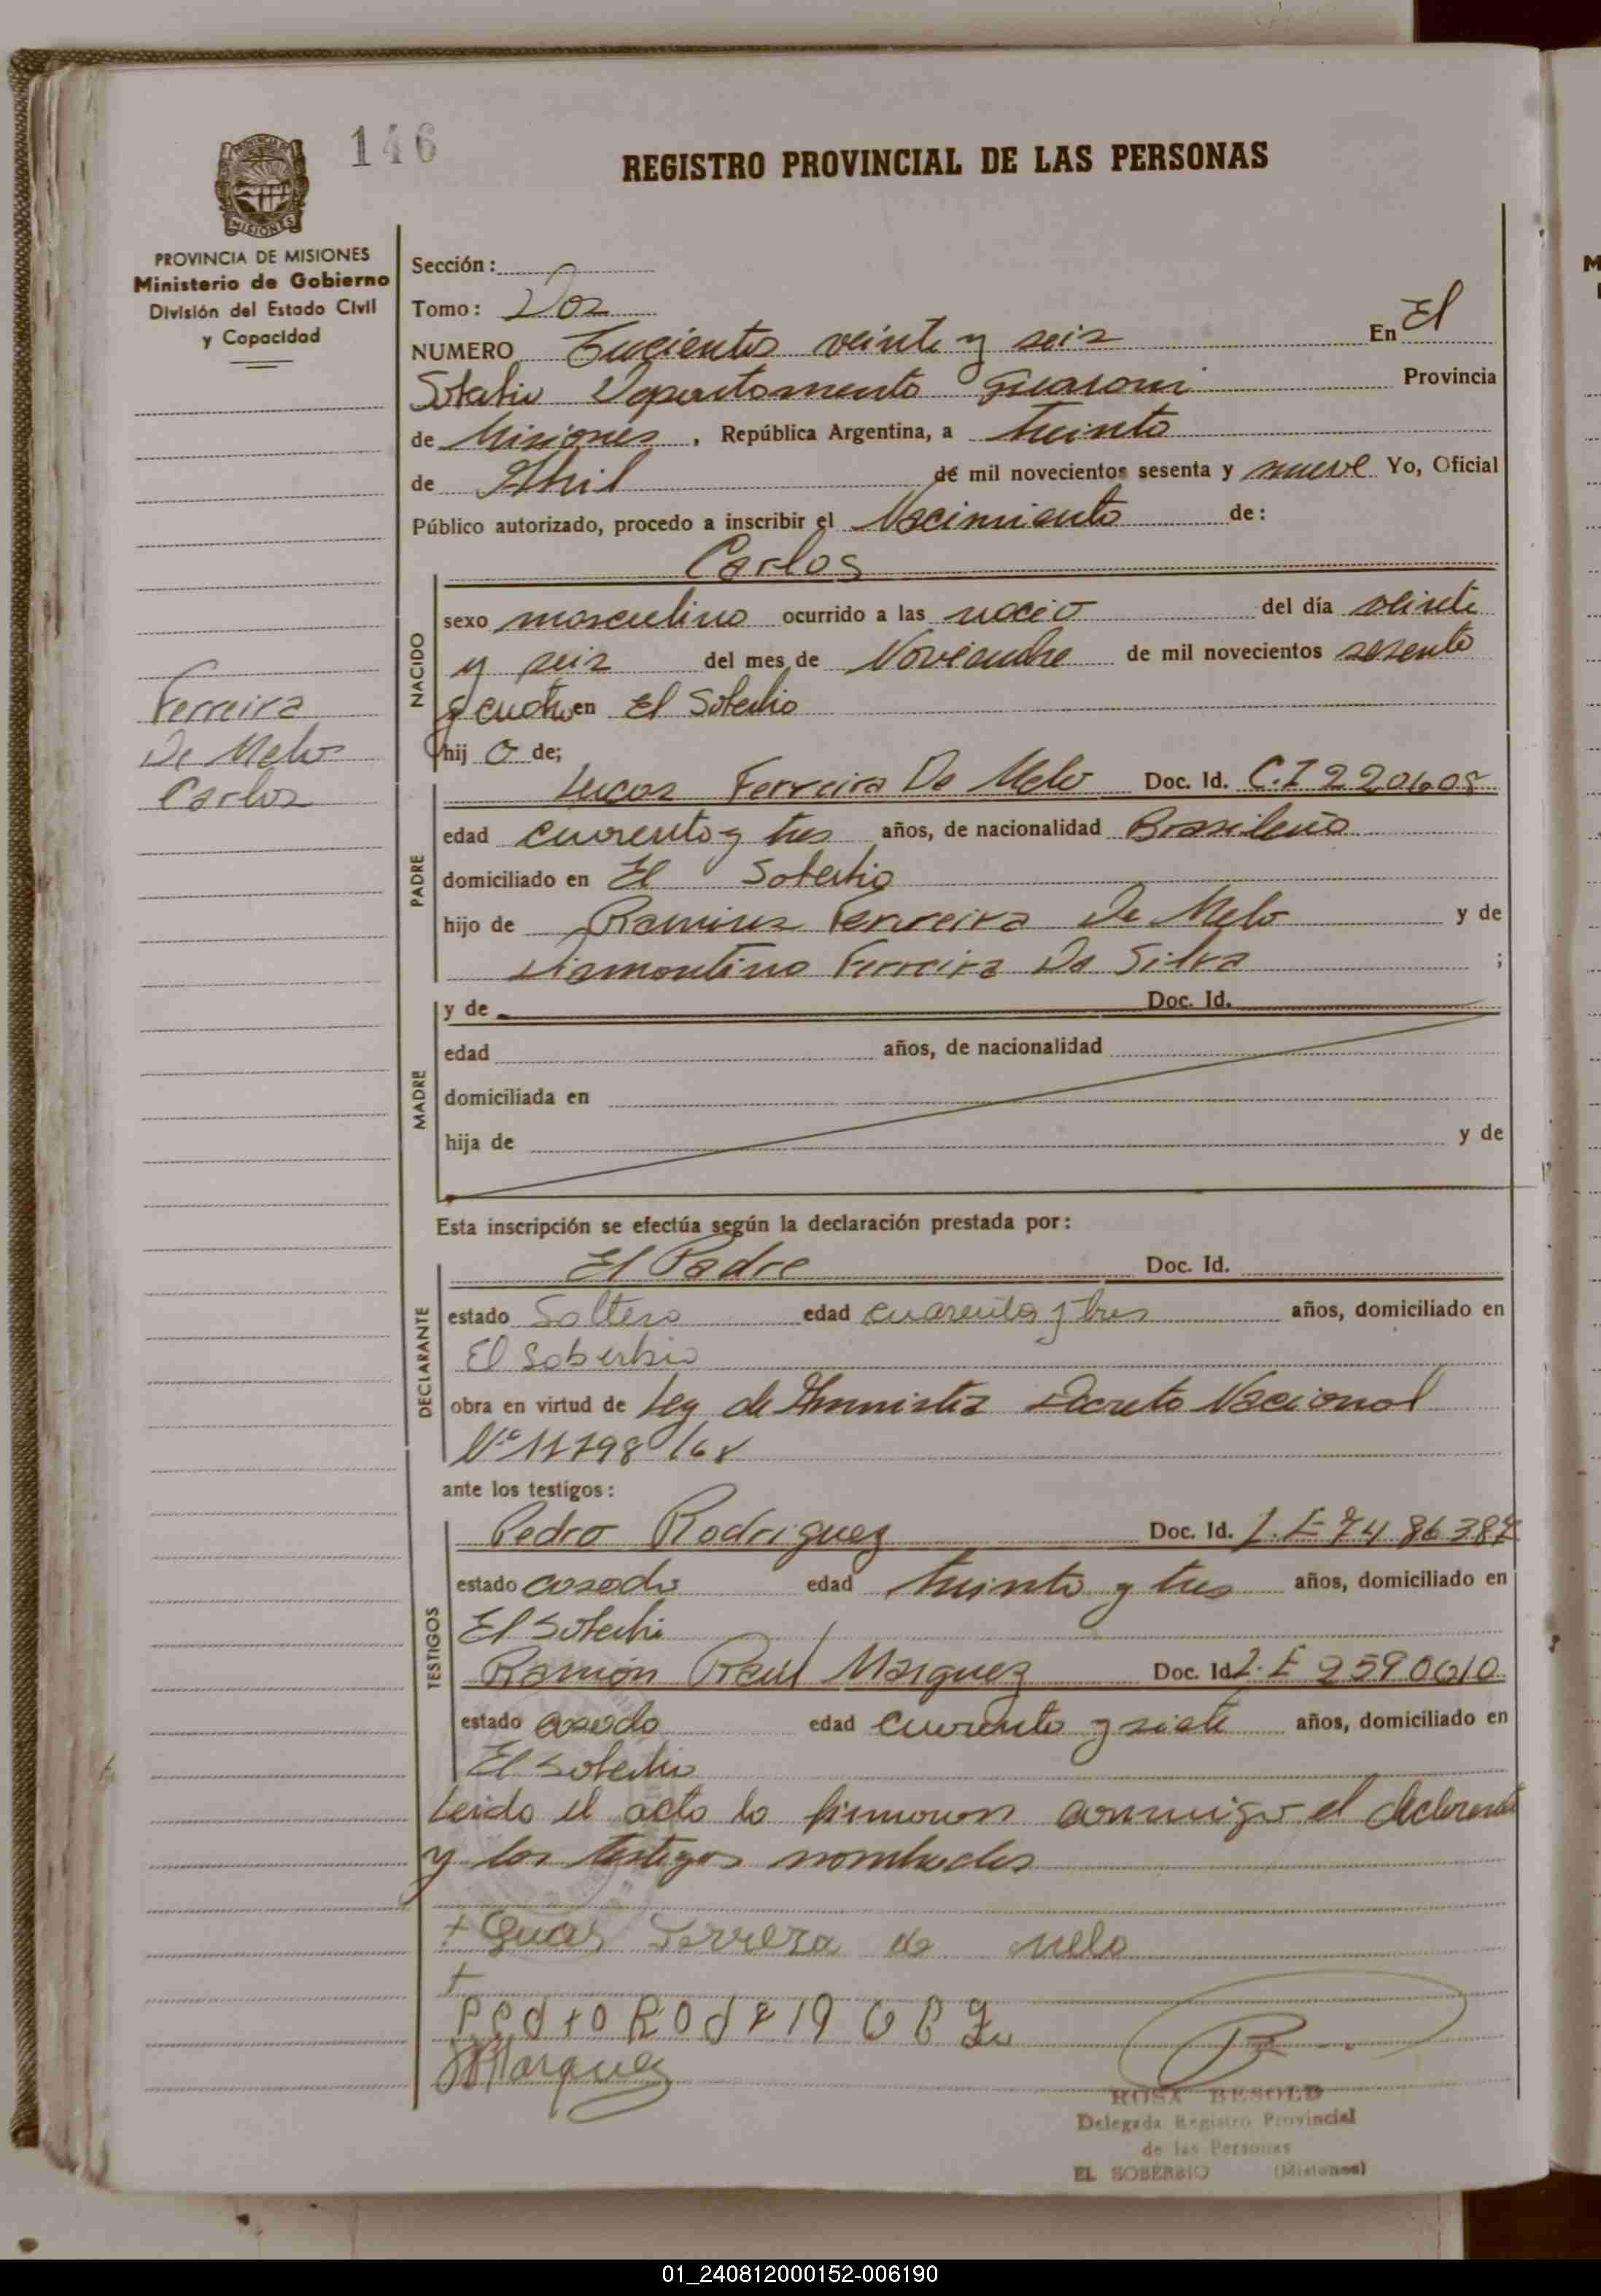 146
REGISTRO PROVINCIAL DE LAS PERSONAS
MISIONES
PROVINCIA DE MISIONES
Ministerio de Gobierno
División del Estado Civil
y Capacidad
Ferreira
De Melo
Carlos
Sección:
Tomo: Dos
NUMERO Trecientos veinte y seis En El
Soberbio Departamento Guarani Provincia
de Misiones, República Argentina, a treinta
de Abril de mil novecientos sesenta y nueve Yo, Oficial
Público autorizado, procedo a inscribir el Nacimiento de:
Carlos
NACIDO
sexo masculino ocurrido a las nació del día veinte
y seis del mes de Noviembre de mil novecientos sesenta
y cuatro en El Soberbio
hijo de;
PADRE
Lucas Ferreira De Melo Doc. Id. C.I 220608
edad cuarenta y tres años, de nacionalidad Brasileña
domiciliado en El Soberbio
hijo de Ramires Ferreira De Melo y de
Diamantina Ferreira Da Silva ;
MADRE
y de Doc. Id.
edad años, de nacionalidad
domiciliada en
hija de y de
Esta inscripción se efectúa según la declaración prestada por:
DECLARANTE
El Padre Doc. Id.
estado Soltero edad cuarenta y tres años, domiciliado en
El Soberbio
obra en virtud de Ley de Amnistia Decreto Nacional
Nº 17798/68
ante los testigos:
TESTIGOS
Pedro Rodriguez Doc. Id. L.E 7486387
estado casado edad treinta y tres años, domiciliado en
El Soberbio
Ramón Raúl Marquez Doc. Id. L.E 2590610
estado casado edad cuarenta y siete años, domiciliado en
El Soberbio
Leida el acta la firmaron conmigo el declarante
y los testigos nombrados
+ Ferrera de melo
+
Pedro Rodriguez
Marquez
ROSA BESOLD
Delegada Registro Provincial
de las Personas
EL SOBERBIO (Misiones)
01_240812000152-006190